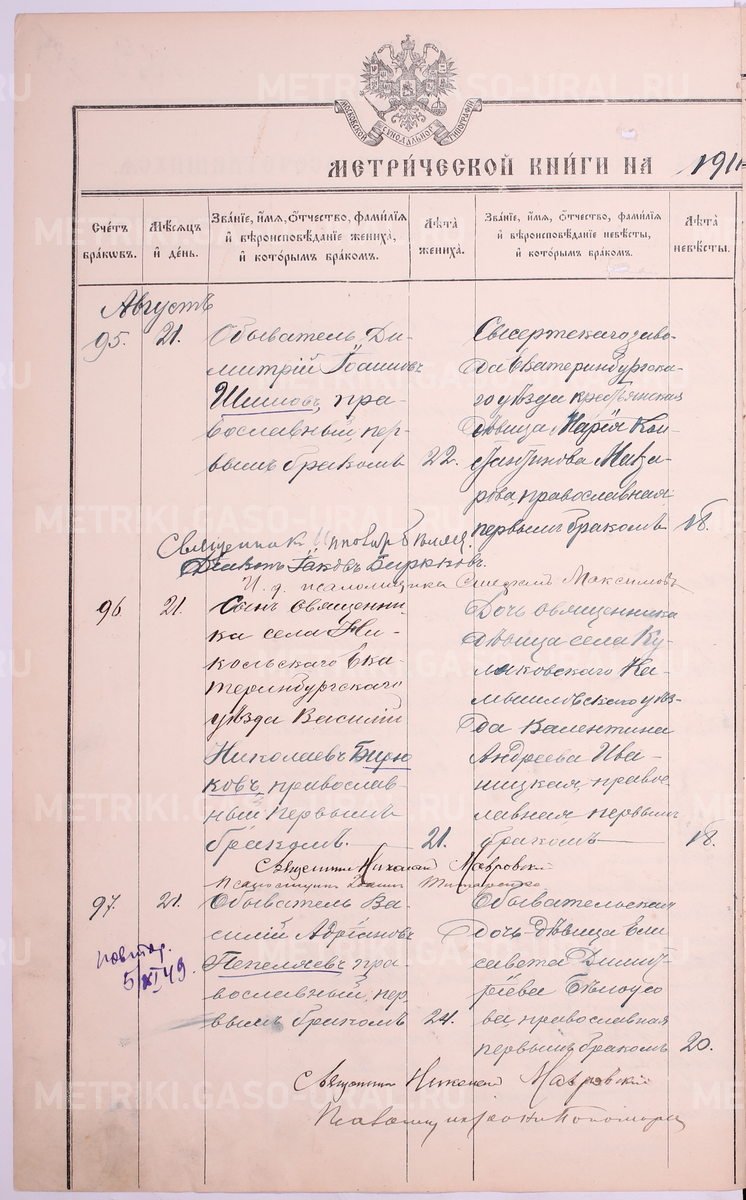 МОСКОВСКОЙ СѴНОДАЛЬНОЙ ТИПОГРАФІИ
МЕТРИ́ЧЕСКОЙ КНИ́ГИ НА 1911
Счетъ бра́ковъ.
Мѣ́сяцъ и҆ де́нь.
Зва́нїе, и҆́мя, ѻ҆́тчество, фами́лїя и҆ вѣроисповѣ́данїе жениха̀, и҆ кото́рымъ бра́комъ.
Лѣ́та жениха̀.
Зва́нїе, и҆́мя, ѻ҆́тчество, фами́лїя и҆ вѣроисповѣ́данїе невѣ́сты, и҆ кото́рымъ бра́комъ.
Лѣ́та невѣ́сты.
Августъ
95.
21.
Обыватель Ди-
митрій Іоанновъ
Шишовъ, пра-
вославный пер-
вымъ бракомъ
22.
Сысертскаго заво-
да Екатеринбургска-
го уѣзда крестьянская
дѣвица Марія Кон-
стантинова Мака-
рова, православная
первымъ бракомъ
18.
Священникъ
Діаконъ Іаковъ Бирюковъ.
И. д. псаломщика Максимовъ
96.
21.
Сынъ священни-
ка села Ни-
кольскаго Ека-
теринбургскаго
уѣзда Василій
Николаевъ Бирю
ковъ, православ-
ный первымъ
бракомъ.
21.
Дочь священника
дѣвица села Ку-
ликовскаго Ка-
мышловскаго уѣз-
да Валентина
Андреева Ива-
ницкая, право-
славная первымъ
бракомъ
18.
Священникъ Николай Мавровскій
Псаломщикъ
97.
21.
Обыватель Ва-
силій Адріановъ
Пепеляевъ пра-
вославный, пер-
вымъ бракомъ
24.
Обывательская
дочь-дѣвица Ели
савета Димит-
ріева Бѣлоусо
ва, православная
первымъ бракомъ
20.
повтор.
5/XI 49.
Священникъ Николай Мавровскій
METRIKI.GASO-URAL.RU